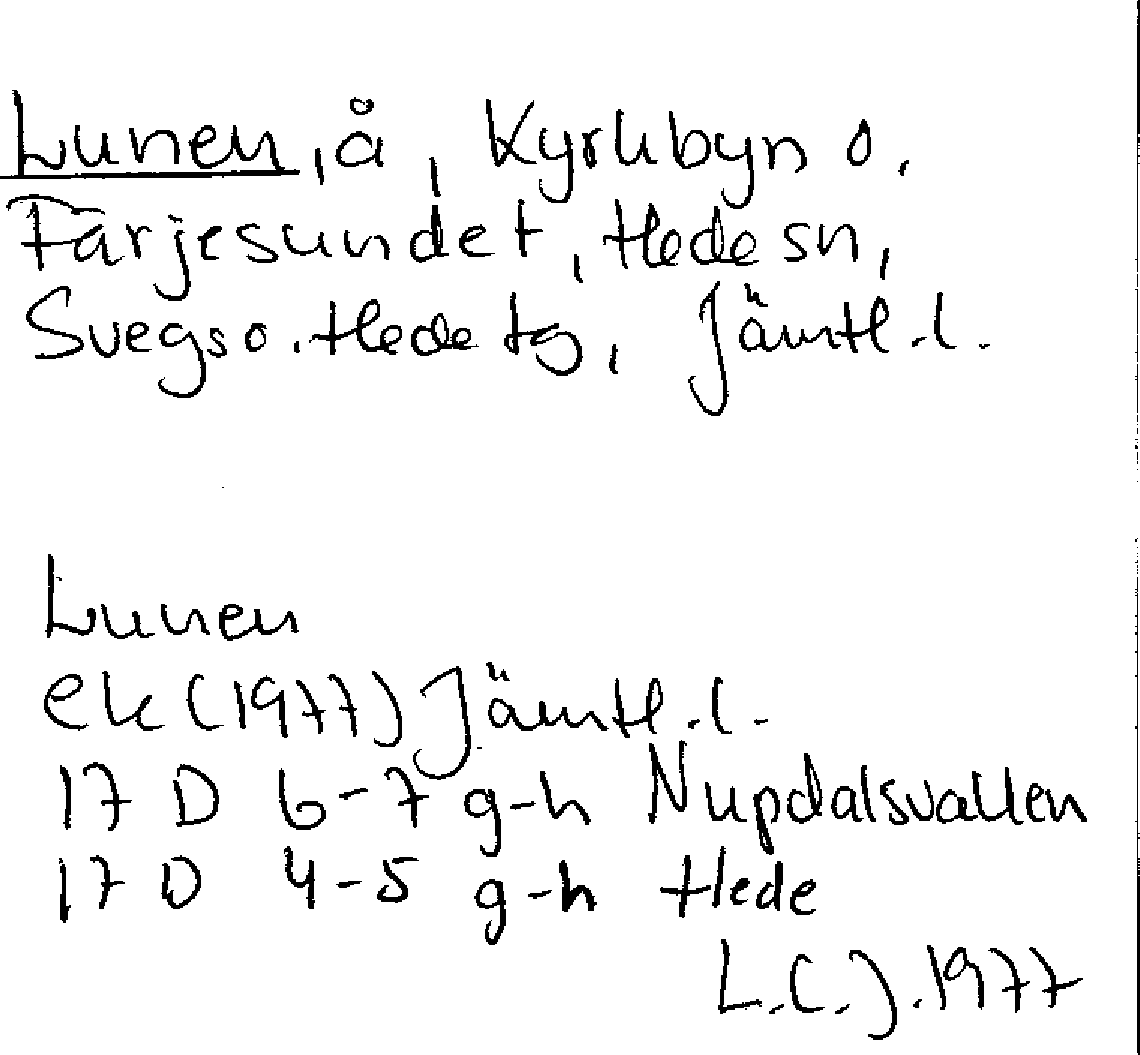 Lunen, å, Kyrkbyn o.
Färjesundet, Hede sn,
Svegs o. Hede tg, Jämtl. l.
Lunen
ek (1977) Jämtl. l.
17 D 6-7 g-h Nupdalsvallen
17 D 4-5 g-h Hede
L.C.J. 1977